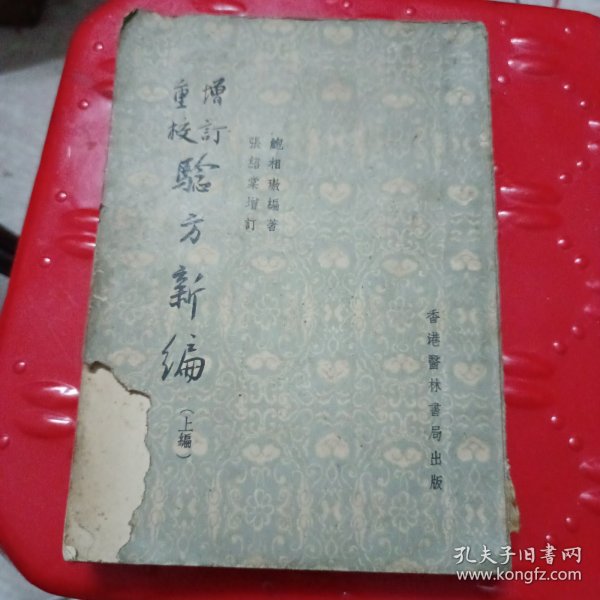 增訂
重校
驗方新编
(上編)
鮑相璈編著
張紹棠增訂
香港醫林書局出版
孔夫子旧書网
www.kongfz.com